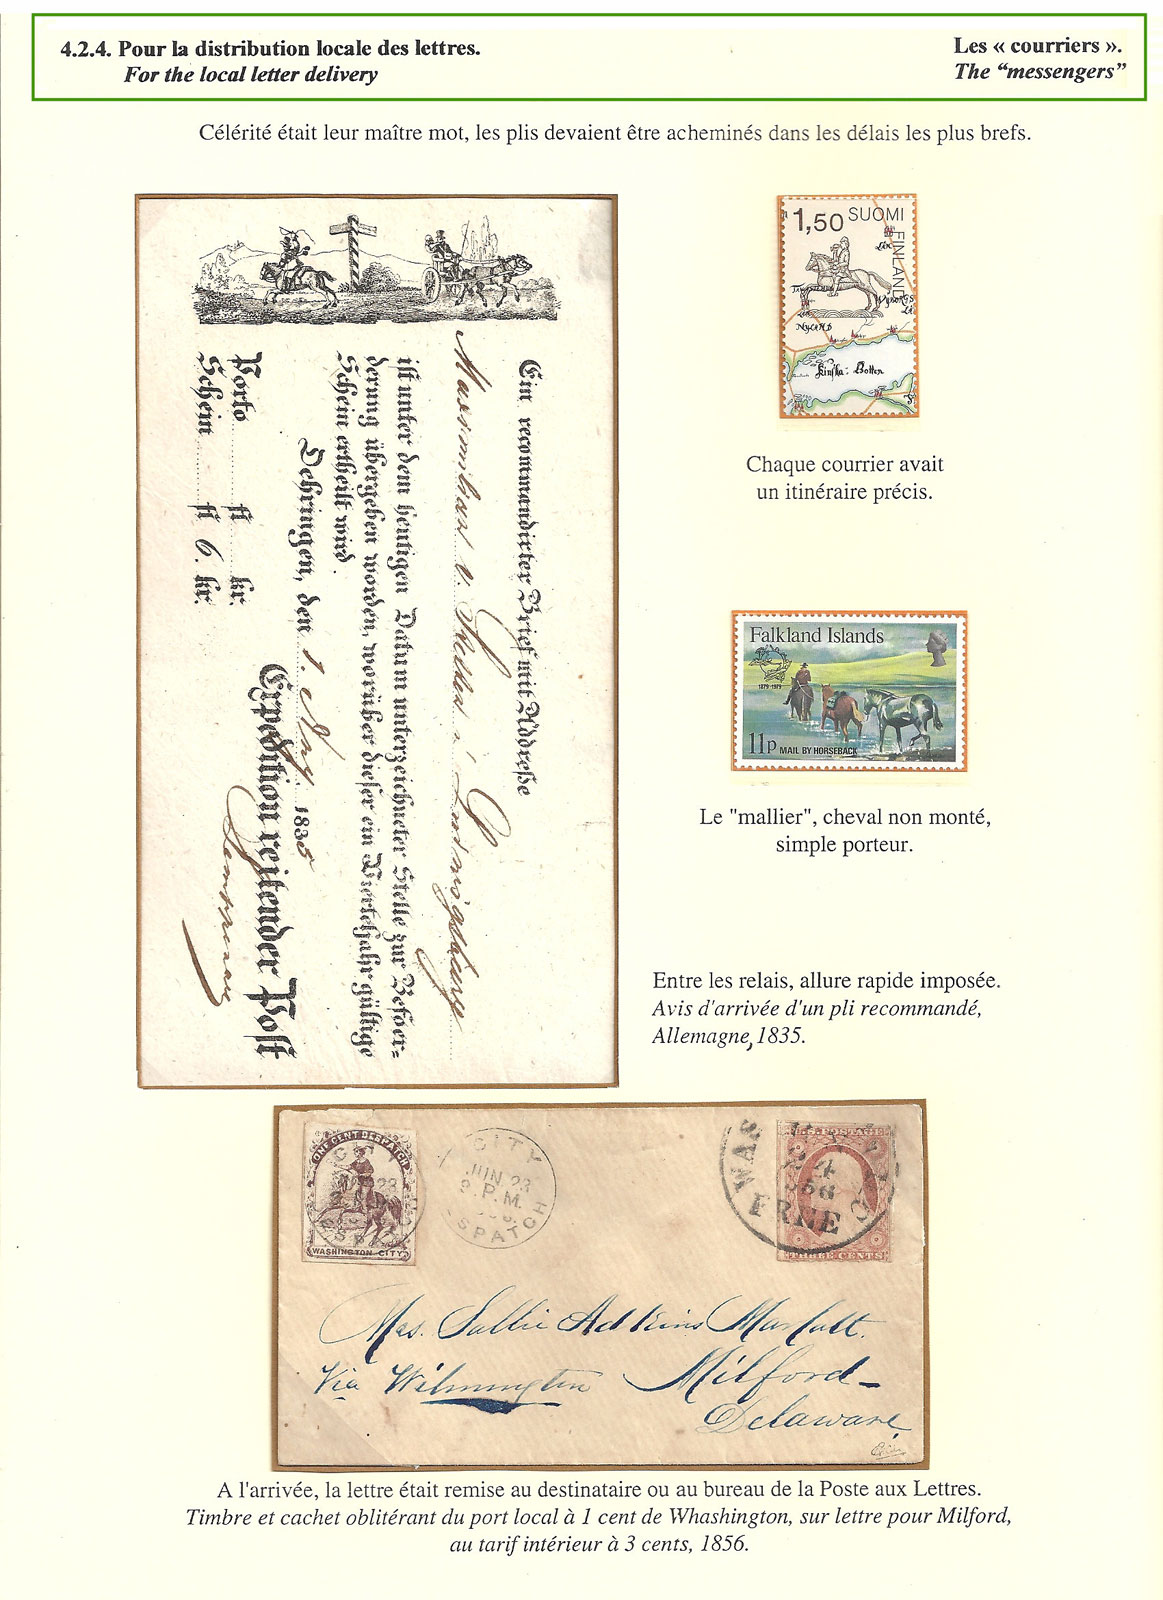 4.2.4. Pour la distribution locale des lettres.
For the local letter delivery
Les « courriers ».
The “messengers”
Célérité était leur maître mot, les plis devaient être acheminés dans les délais les plus brefs.
Ein recommandirter Brief mit Addreße
ist unter dem heutigen Datum unterzeichneter Stelle zur Beföer-
derung übergeben worden, worüber dieser ein Vierteljahr gültige
Schein ertheilt wird.
Oehringen, den 1. 1835
Expedition reitender Post
Porto fl kr.
Schein fl 6. kr.
1,50 SUOMI
FINLAND
NYLAND
Botten
Chaque courrier avait
un itinéraire précis.
Falkland Islands
1879-1979
11p MAIL BY HORSEBACK
Le "mallier", cheval non monté,
simple porteur.
Entre les relais, allure rapide imposée.
Avis d'arrivée d'un pli recommandé,
Allemagne, 1835.
ONE CENT DESPATCH
WASHINGTON CITY
CITY
JUN 23
3 P.M.
SPATCH
WAS
24
FREE
U.S. POSTAGE
THREE CENTS
Mrs. Sallie Adkins
Via Wilmington Milford
Delaware
A l'arrivée, la lettre était remise au destinataire ou au bureau de la Poste aux Lettres.
Timbre et cachet oblitérant du port local à 1 cent de Whashington, sur lettre pour Milford,
au tarif intérieur à 3 cents, 1856.